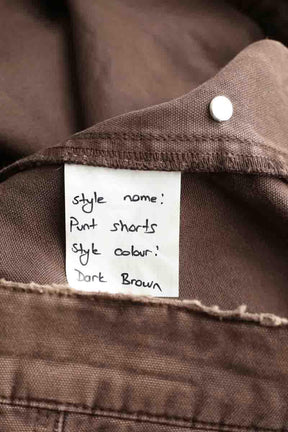 style name:
Punt shorts
Style colour:
Dark Brown